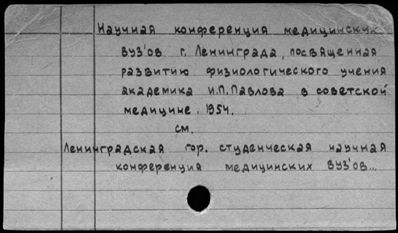 Научная конференция медицинских
вуз'ов г. Ленинграда, посвященная
развитию физиологического учения
академика И.П. Павлова в советской
медицине. 1954.
см.
Ленинградская гор. студенческая научная
конференция медицинских вуз'ов...